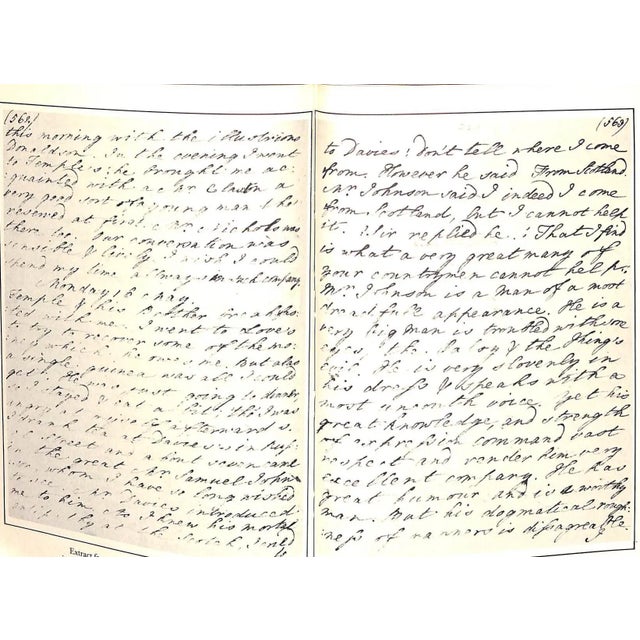 (562)
this morning with the illustrious
Donaldson. In the evening I went
to Temple's; he brought me ac-
quainted with a Mr Claxton a
very good sort of a young man tho
reserved at first. Mr Nichols was
there too. Our conversation was
sensible & lively. I wish I could
spend my time always in such company
Monday 16 May.
Temple & his Brother breakfas-
ted with me. I went to Love's
to try to recover some of the mo-
ney which he owes me. But alas
a single guinea was all I could
get. He was just going to dinner
so I stayed & eat a bit, tho' I was
angry at myself afterwards.
I drank tea at Davies's in Rus-
sel street and about seven came
in the great Mr Samuel Johnson
whom I have so long wished
to see. Mr Davies introduced
me to him. As I knew his mortal
antipathy at the Scotch, I cried
to
(563)
to Davies; don't tell where I come
from. However he said From Scotland.
Mr Johnson said I indeed I come
from Scotland, but I cannot help
it. Sir replied he: That I find
is what a very great many of
your countrymen cannot help.
Mr Johnson is a Man of a most
dreadfull appearance. He is a
very big man is troubled with sore
eyes, the Palsy & the King's
evil. He is very slovenly in
his dress & speaks with a
most uncouth voice. Yet his
great knowledge, and strength
of expression command vast
respect and render him very
excellent company. He has
great humour and is a worthy
man. But his dogmatical rough-
ness of manners is disagreable.
Extract